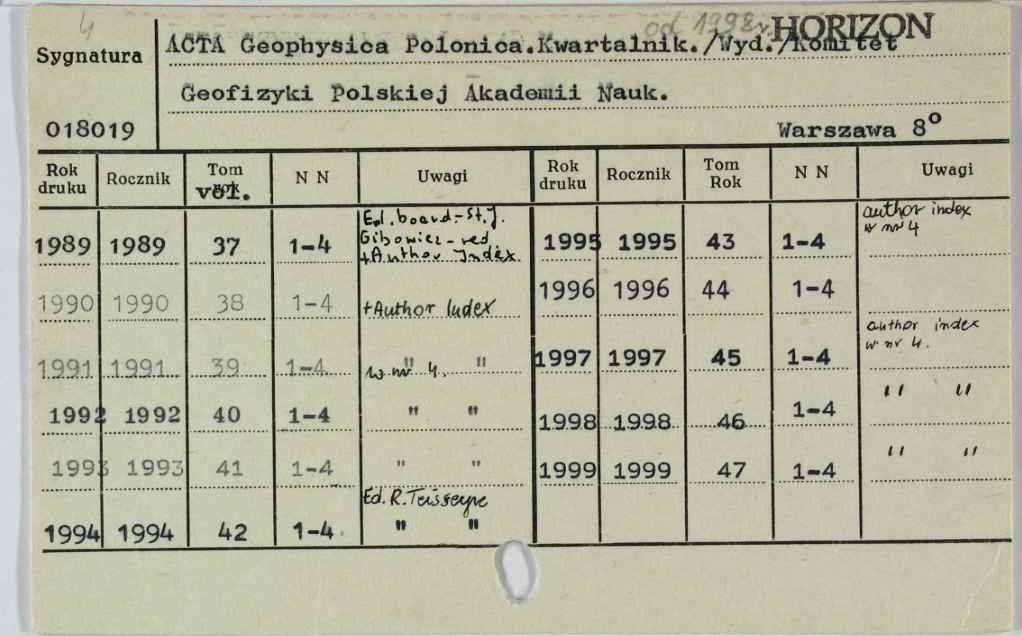 4
od 1998r.
HORIZON
Sygnatura
ACTA Geophysica Polonica.Kwartalnik./Wyd./Komitet
Geofizyki Polskiej Akademii Nauk.
018019
Warszawa 8°
Rok druku Rocznik Tom rok vol. N N Uwagi Rok druku Rocznik Tom Rok N N Uwagi
1989 1989 37 1-4 Ed. board - St. J. Gibowicz - red +Author Index
1990 1990 38 1-4 +Author Index
1991 1991 39 1-4 " " w nr 4.
1992 1992 40 1-4 " "
1993 1993 41 1-4 " "
1994 1994 42 1-4 Ed. R. Teisseyre " "
1995 1995 43 1-4 author index w nr 4
1996 1996 44 1-4
1997 1997 45 1-4 author index w nr 4.
1998 1998 46 1-4 " "
1999 1999 47 1-4 " "